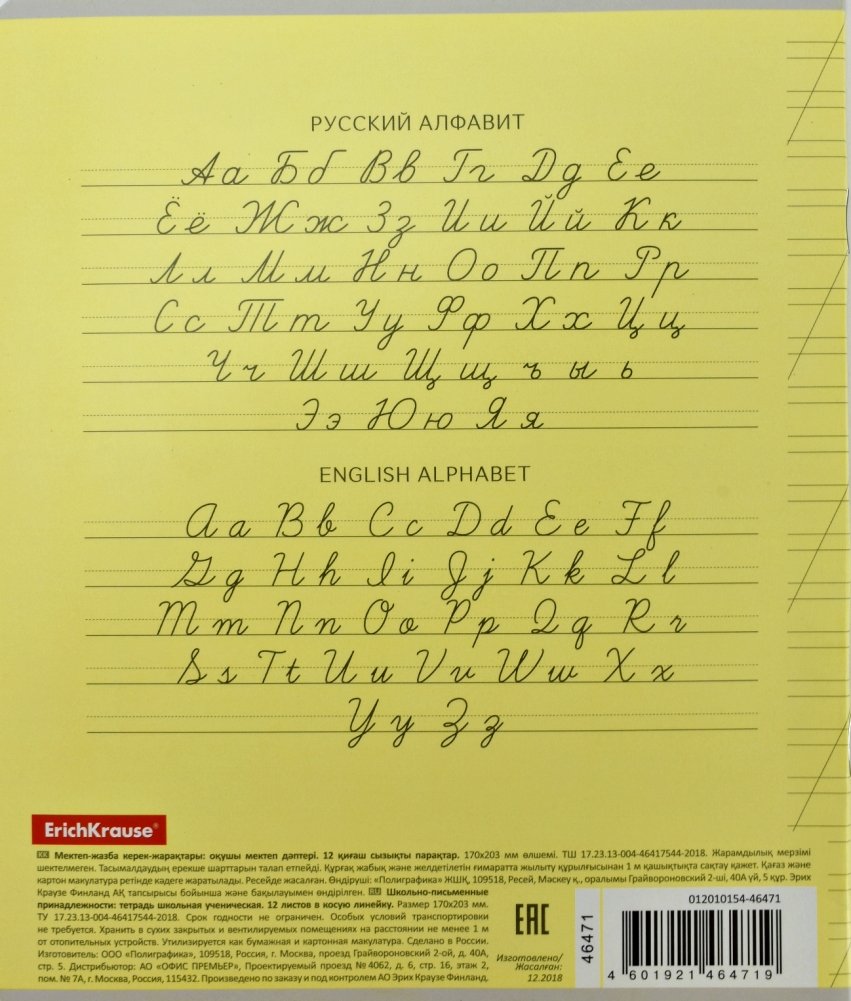 РУССКИЙ АЛФАВИТ
Аа Бб Вв Гг Дд Ее
Ёё Жж Зз Ии Йй Кк
Лл Мм Нн Оо Пп Рр
Сс Тт Уу Фф Хх Цц
Чч Шш Щщ ъ ы ь
Ээ Юю Яя
ENGLISH ALPHABET
Aa Bb Cc Dd Ee Ff
Gg Hh Ii Jj Kk Ll
Mm Nn Oo Pp Qq Rr
Ss Tt Uu Vv Ww Xx
Yy Zz
ErichKrause®
KK Мектеп-жазба керек-жарақтары: оқушы мектеп дәптері. 12 қиғаш сызықты парақтар. 170х203 мм өлшемі. ТШ 17.23.13-004-46417544-2018. Жарамдылық мерзімі
шектелмеген. Тасымалдаудың ерекше шарттарын талап етпейді. Құрғақ жабық және желдетілетін ғимаратта жылыту құрылғысынан 1 м қашықтықта сақтау қажет. Қағаз және
картон макулатура ретінде кәдеге жаратылады. Ресейде жасалған. Өндіруші: «Полиграфика» ЖШҚ, 109518, Ресей, Мәскеу қ., оралымы Грайвороновский 2-ші, 40А үй, 5 құр. Эрих
Краузе Финланд АҚ тапсырысы бойынша және бақылауымен өндірілген. RU Школьно-письменные
принадлежности: тетрадь школьная ученическая. 12 листов в косую линейку. Размер 170х203 мм.
ТУ 17.23.13-004-46417544-2018. Срок годности не ограничен. Особых условий транспортировки
не требуется. Хранить в сухих закрытых и вентилируемых помещениях на расстоянии не менее 1 м
от отопительных устройств. Утилизируется как бумажная и картонная макулатура. Сделано в России.
Изготовитель: ООО «Полиграфика», 109518, Россия, г. Москва, проезд Грайвороновский 2-ой, д. 40А,
стр. 5. Дистрибьютор: АО «ОФИС ПРЕМЬЕР», Проектируемый проезд № 4062, д. 6, стр. 16, этаж 2,
пом. № 7А, г. Москва, Россия, 115432. Произведено по заказу и под контролем АО Эрих Краузе Финланд.
ЕАС
Изготовлено/
Жасалған:
12.2018
46471
012010154-46471
4 601921 464719